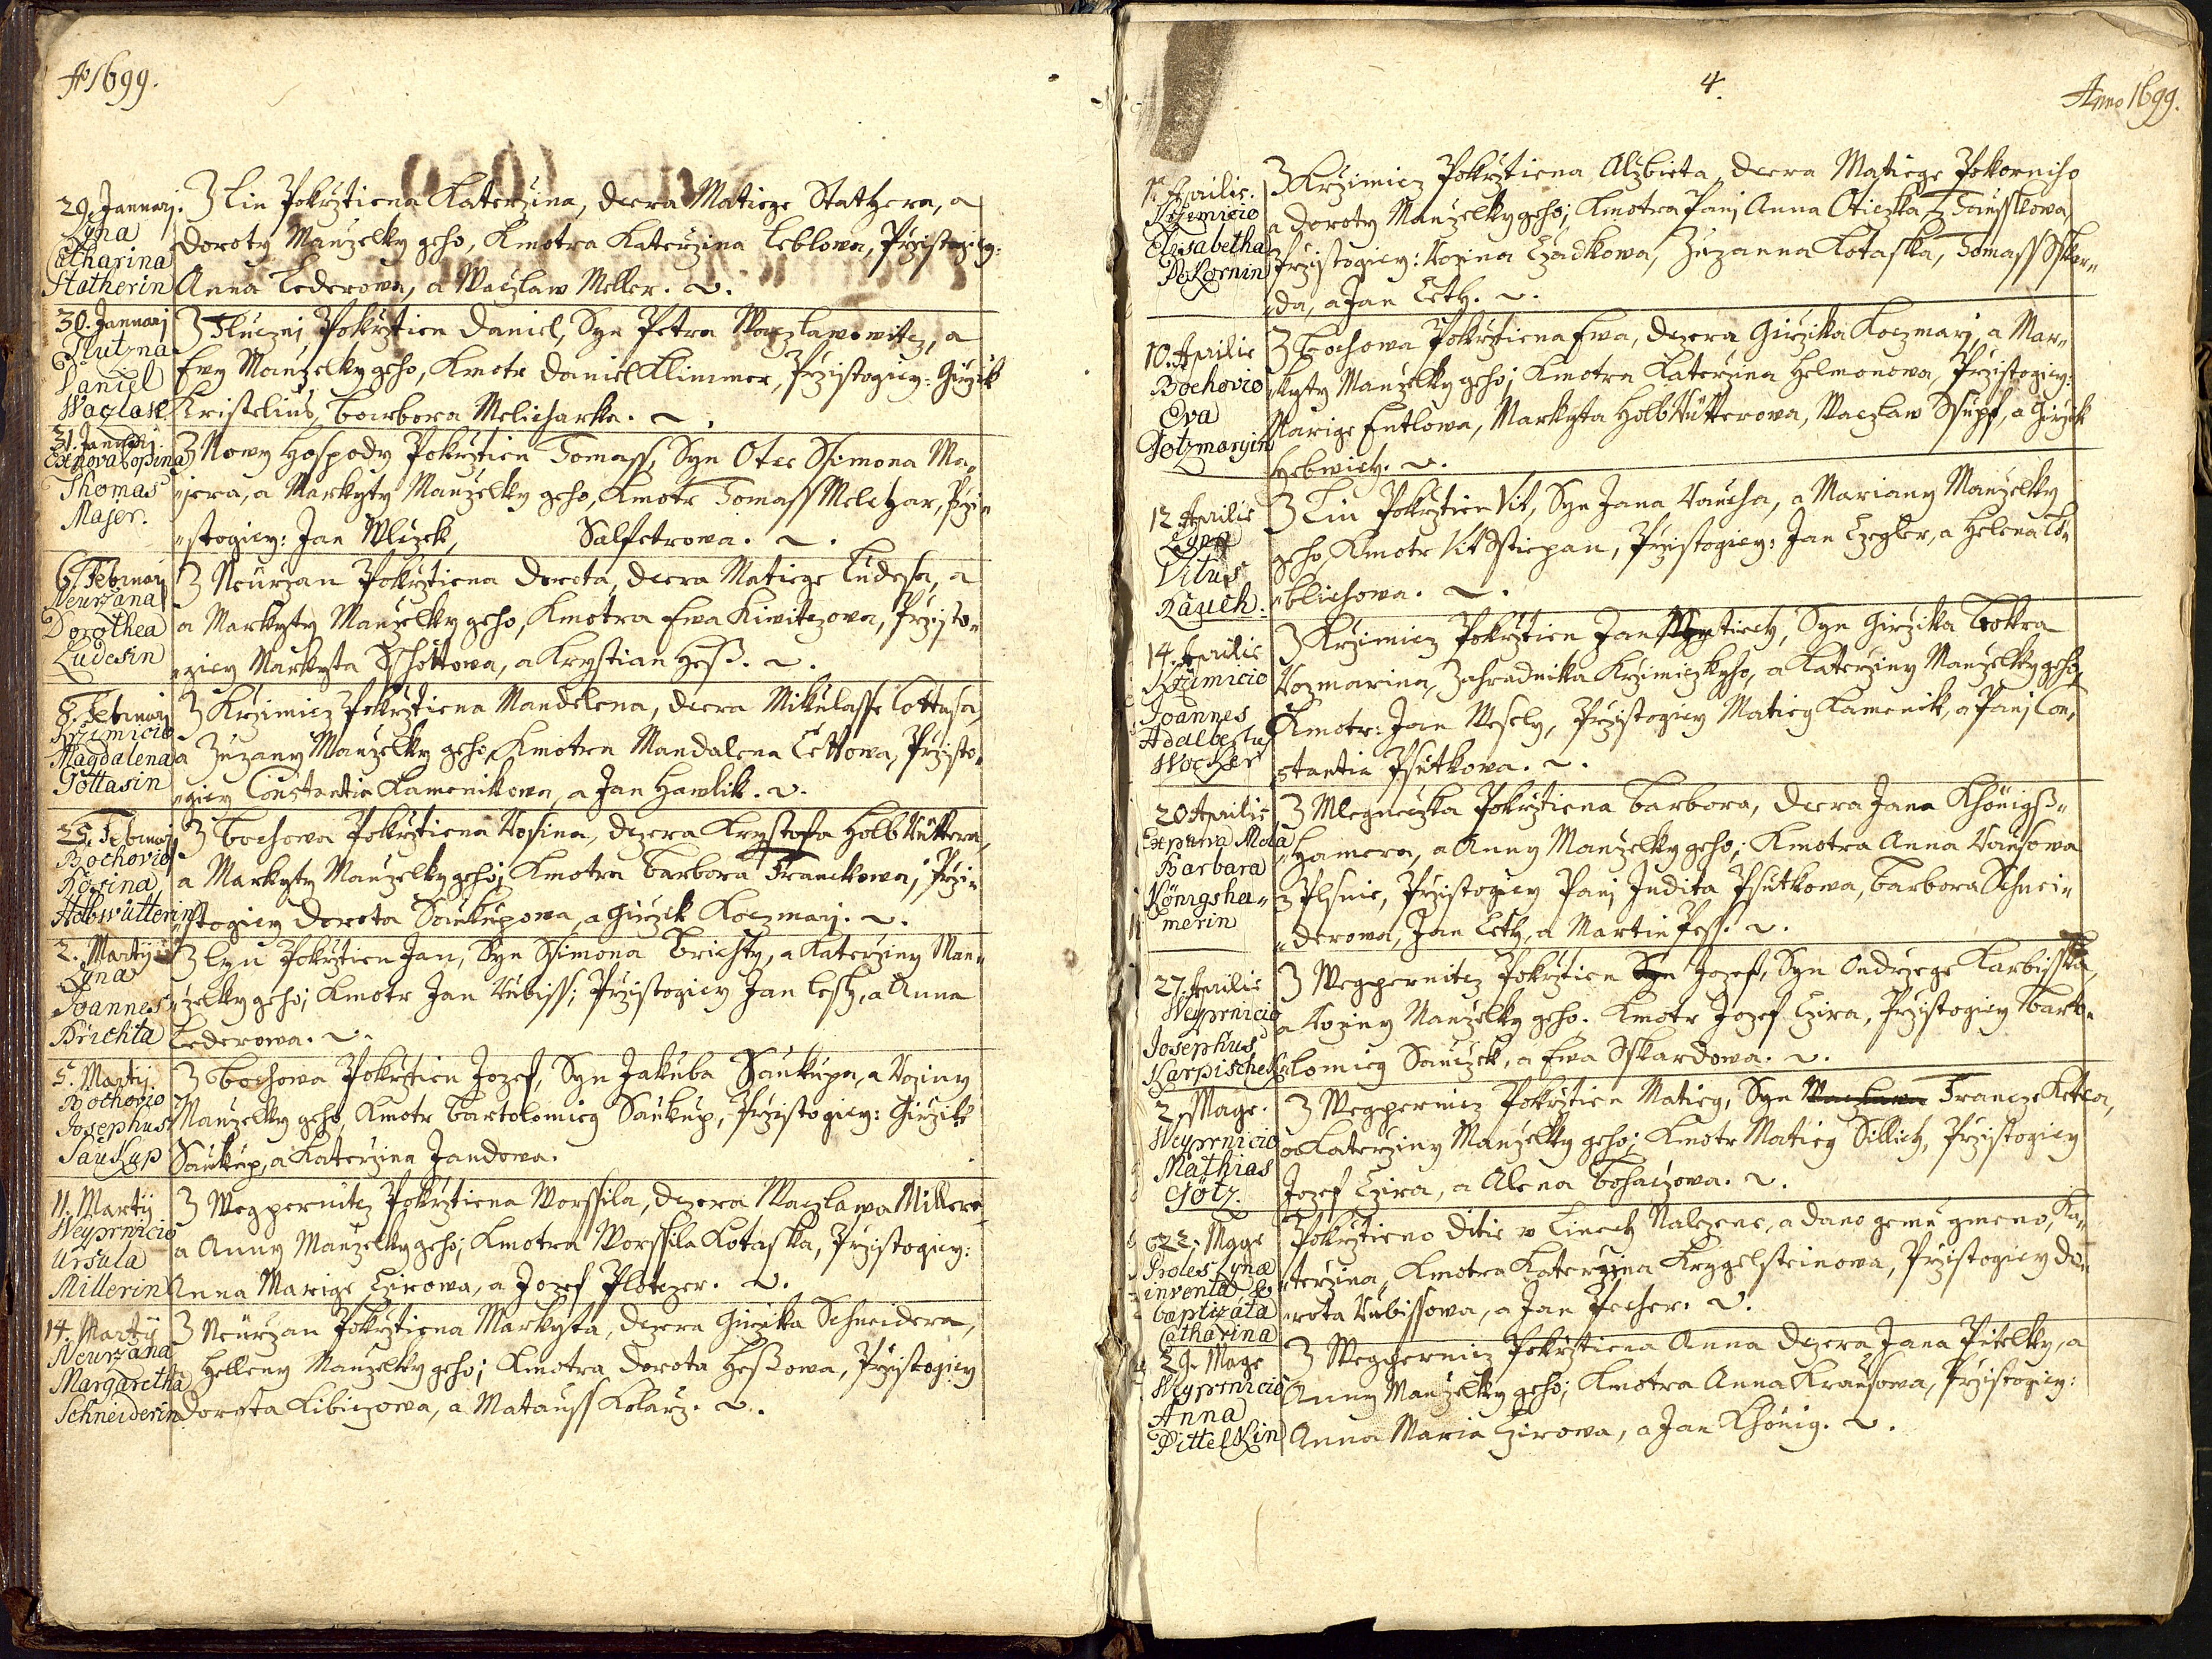 Ao 1699.
29. Januarij.
Lyna
Catharina
Statherin
Z Lin Pokrztiena Katerzina, dcera Matiege Stathera, a
Doroty Manzelky geho, Kmotra Katerzina Leblowa, Przistogicy:
Anna Lederowa, a Waczlaw Meller.
30. Januarij
Tlutzna
Daniel
Waglaw
Z Tluczni Pokrztien Daniel, Syn Petra Waczlawowitz, a
Ewy Manzelky geho, Kmotr Daniel Klimmer, Przistogicy: Girzik
Kristelius, Barbora Melicharka.
31. Januarij.
Ex nova hospina
Thomas
Majer.
Z Nowy Hospody Pokrztien Tomass, Syn Otec Ssimona Ma„
„jera, a Markyty Manzelky geho, Kmotr Tomass Meltzar, Przi„
„stogicy: Jan Wlczek, Salfetrowa.
6. Februarij
Neurzana
Dorothea
Ludesin
Z Neurzan Pokrztiena Dorota, dcera Matiege Ludesa, a
a Markyty Manzelky geho, Kmotra Ewa Kiwitzowa, Przisto„
„gicy Markyta Sshottowa, a Krystian Heß.
8. Februarij
Krzimicio
Magdalena
Gottasin
Z Krzimicz Pokrztiena Mandelena, dcera Mikulasse Gottasa,
a Zuzany Manzelky geho, Kmotra Mandalena Lettowa, Przisto„
„gicy Constantia Kamenikowa, a Jan Hawlik.
25. Februarij
Bochovio
Rosina
Holbwutterin
Z Bochowa Pokrztiena Rosina, dczera Krystofa Holbwuttera,
a Markyty Manzelky geho; Kmotra Barbora Franckowa; Przi„
„stogicy Dorota Saukupowa, a Girzik Koczmarj.
2. Martij
Lyna
Joannes
Brichta
Z Lyn Pokrztien Jan, Syn Ssimona Brichty, a Katerziny Man„
„zelky geho; Kmotr Jan Rubiss; Przistogicy Jan Lesch, a Anna
Lederowa.
5. Martij.
Bochovio
Josephus
Saukup
Z Bochowa Pokrztien Jozef, Syn Jakuba Saukupa, a Roziny
Manzelky geho, Kmotr Bartolomieg Saukup, Przistogicy: Girzik
Saukup, a Katerzina Jandowa.
11. Martij
Weyprnicio
Ursula
Millerin
Z Wegpernitz Pokrztiena Worssila, dczera Waczlawa Millera,
a Anny Manzelky geho; Kmotra Worssila Kotaska, Przistogicy:
Anna Marige Czirowa, a Jozef Plotczer.
14. Martij
Neurzana
Margaretha
Schneiderin
Z Neurzan Pokrztiena Markyta, dczera Girzika Schneidera,
a Helleny Manzelky geho; Kmotra Dorota Heßowa, Przistogicy
Dorota Kibiczowa, a Matauss Kolarz.
4.
Anno 1699.
1. Aprilis.
Krzimicio
Elisabetha
Pokornin
Z Krzimicz Pokrztiena Alzbieta, dcera Matiege Pokorniho
a Doroty Manzelky geho; Kmotra Pani Anna Oticzka, z Tausskowa,
Przistogicy: Rozina Czadkowa, Zuzanna Kotaska, Tomass Sskar„
„da, a Jan Leth.
10. Aprilis
Bochovio
Eva
Gotzmaryin
Z Bochowa Pokrztiena Ewa, dczera Girzika Koczmarj, a Mar„
„kyty Manzelky geho; Kmotra Katerzina Helmonowa, Przistogicy:
Marige Entlowa, Markyta Holbwutterowa, Waczlaw Ssupf, a Girzik
Hebwich.
12. Aprilis
Lyna
Vitus
Rauch.
Z Lin Pokrztien Vit, Syn Jana Raucha, a Mariany Manzelky
geho, Kmotr Vit Sstiepan, Przistogicy: Jan Czegler, a Helena To„
„blichowa.
14. Aprilis
Krzimicio
Joannes
Adalbertus
Wocker
Z Krzimicz Pokrztien Jan Wogtiech, Syn Girzika Wokra
Rozmarina, Zahradnika Krzimiczkyho, a Katerziny Manzelky geho,
Kmotr: Jan Wesely, Przistogicy Matieg Kamenik, a Pani Con„
stantia Psutkowa.
20 Aprilis
Ex parva Mola
Barbara
Königsha„
merin
Z Mlegneczka Pokrztiena Barbora, dcera Jana Khönigß„
„hamera, a Anny Manzelky geho; Kmotra Anna Rausowa
z Plsnie, Przistogicy Pani Judita Psutkowa, Barbora Schnei„
„derowa, Jan Leth, a Martin Pess.
27. Aprilis
Weyprnicio
Josephus
Karpischek
Z Wegpernitz Pokrztien Syn Jozef, Syn Ondrzege Karbisska,
a Roziny Manzelky geho. Kmotr Jozef Czira, Przistogicy Barto„
„lomieg Sauczek, a Ewa Sskardowa.
2. Mage.
Weyprnicio
Mathias
Götz.
Z Wegpernicz Pokrztien Matieg, Syn Waczlawa Francze Ketza,
a Katerziny Manzelky geho; Kmotr Matieg Sillich, Przistogicy
Jozef Czira, a Alena Bohaczowa.
22. Mage
Proles Lynæ
inventa &
baptizata
Catharina
Pokrztieno Ditie w Linech Nalezene, a dano gemu gmeno, Ka„
„terzina, Kmotra Katerzina Krygelsteinowa, Przistogicy Do„
„rota Rubissowa, a Jan Pecher.
29. Mage
Weyprnicio
Anna
Pittelkin
Z Wegpernicz Pokrztiena Anna dczera Jana Pitelky, a
Anny Manzelky geho; Kmotra Anna Krausowa, Przistogicy:
Anna Maria Czirowa, a Jan Khönig.